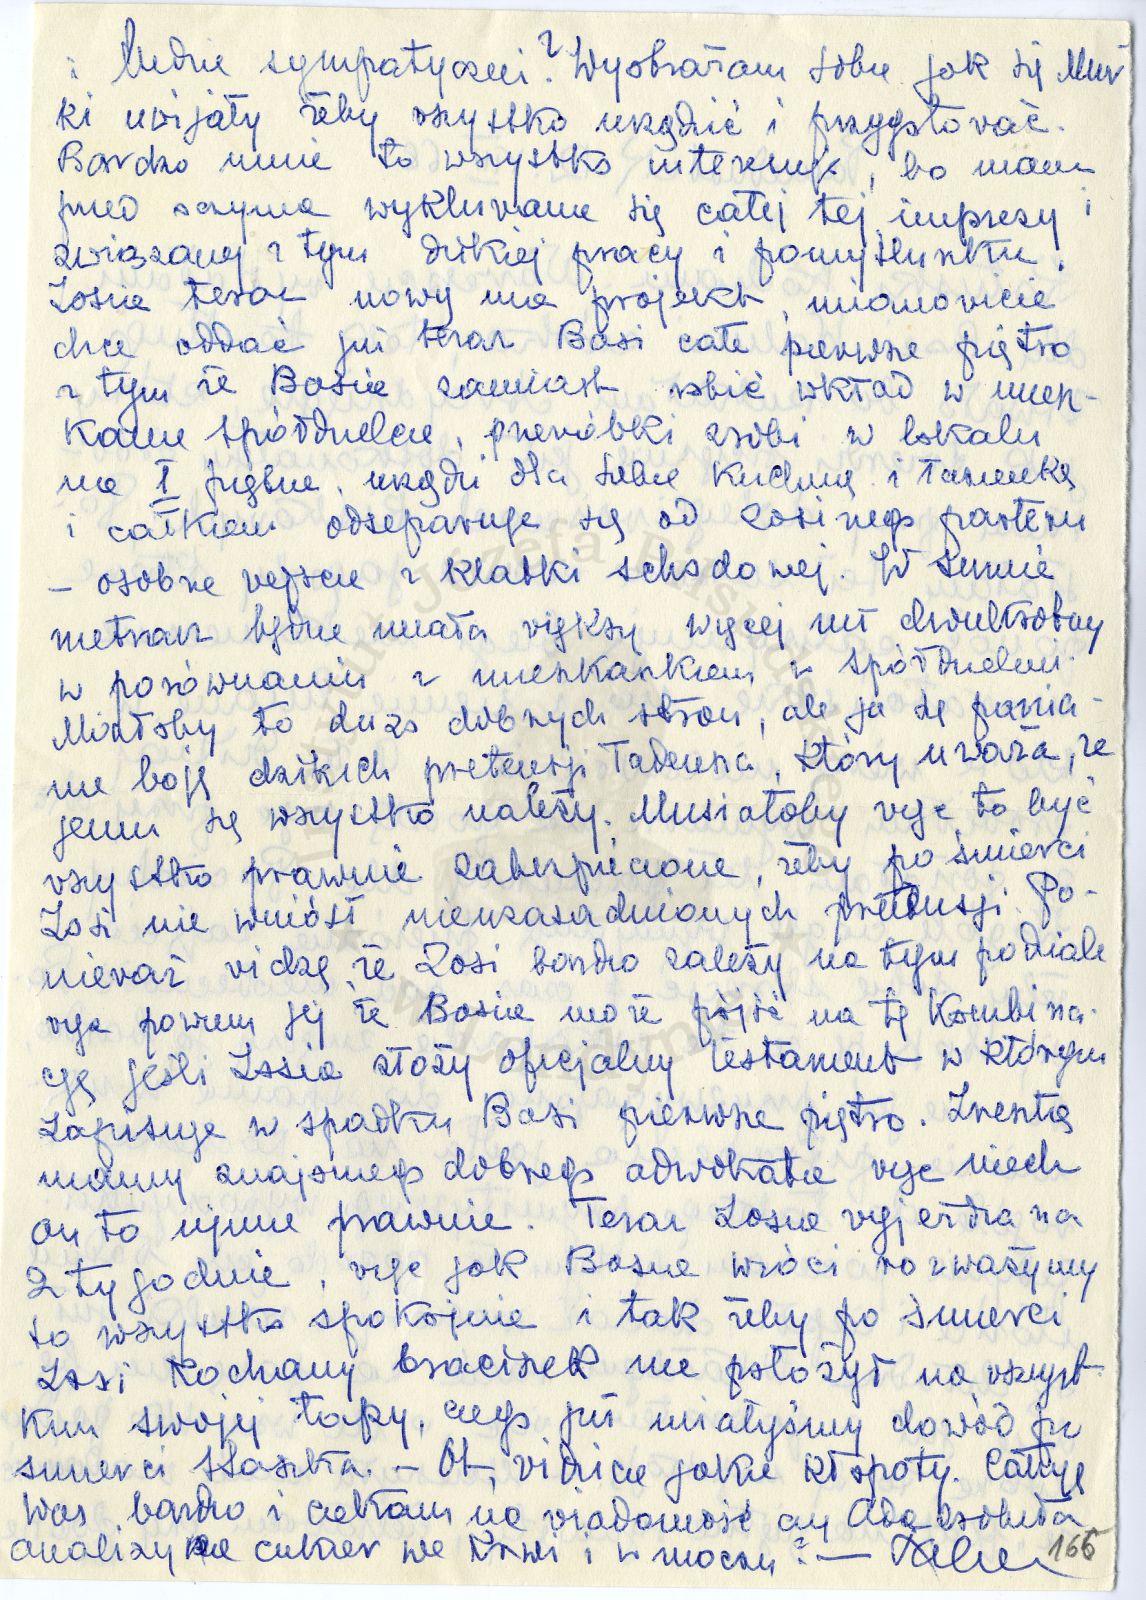 i ludzie sympatyczni? Wyobrażam sobie jak się Mur-
ki uwijały żeby wszystko urządzić i przygotować.
Bardzo mnie to wszystko interesuje, bo mam
przed oczyma wykluwanie się całej tej imprezy i
związanej z tym dzikiej pracy i pomyślunku.
Zosia teraz nowy ma projekt, mianowicie
chce oddać już teraz Basi całe pierwsze piętro
z tym że Basia zamiast robić wkład w miesz-
kanie spółdzielcze, przeróbki zrobi w lokalu
na I piętrze, urządzi dla siebie kuchnię i łazienkę
i całkiem odseparuje się od Zosinego parteru
– osobne wejście z klatki schodowej. W sumie
metraż będzie miała większy więcej niż dwukrotny
w porównaniu z mieszkankiem w spółdzielni.
Miałoby to dużo dobrych stron, ale ja się pania-
nie boję dzikich pretensji Tadeusza, który uważa, że
jemu się wszystko należy. Musiałoby więc to być
wszystko prawnie zabezpieczone, żeby po śmierci
Zosi nie wniósł nieuzasadnionych pretensji. Po-
nieważ widzę że Zosi bardzo zależy na tym podziale
więc powiem jej że Basia może pójść na tę kombina-
cję jeśli Zosia złoży oficjalny testament w którym
zapisuje w spadku Basi pierwsze piętro. Zresztą
mamy znajomego dobrego adwokata więc niech
on to ujmie prawnie. Teraz Zosia wyjeżdża na
2 tygodnie, więc jak Basia wróci rozważymy
to wszystko spokojnie i tak żeby po śmierci
Zosi kochany braciszek nie położył na wszyst-
kim swojej łapy, czego już miałyśmy dowód po
śmierci Staszka. – Ot, widzicie jakie kłopoty. Całuję
Was bardzo i czekam na wiadomość czy Ada zrobiła
analizy na cukier we krwi i w moczu? –
166
Muzeum Józefa Piłsudskiego
w Londynie